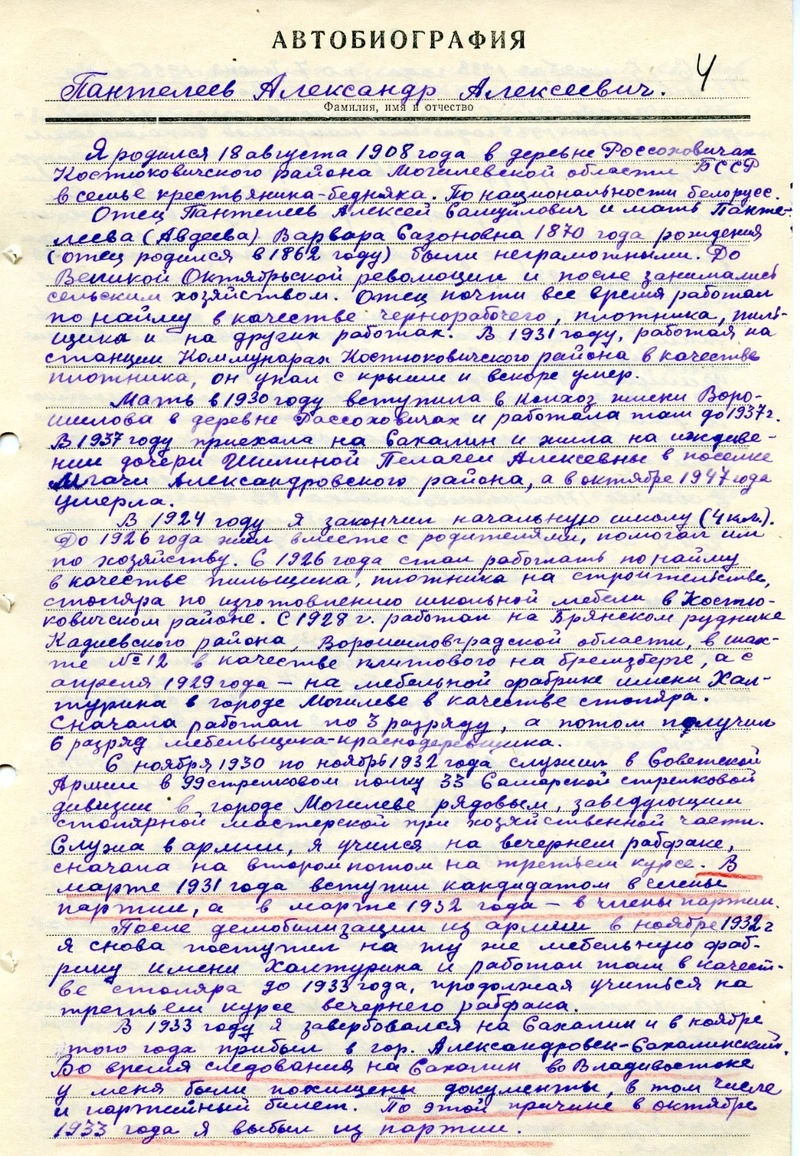 АВТОБИОГРАФИЯ
4
Пантелеев Александр Алексеевич.
Фамилия, имя и отчество
Я родился 18 августа 1908 года в деревне Россоховичах
Костюковичского района Могилевской области БССР
в семье крестьянина-бедняка. По национальности белорус.
Отец Пантелеев Алексей Самуйлович и мать Панте-
леева (Авдеева) Варвара Сазоновна 1870 года рождения
(отец родился в 1862 году) были неграмотными. До
Великой Октябрьской революции и после занимались
сельским хозяйством. Отец почти все время работал
по найму в качестве чернорабочего, плотника, пиль-
щика и на других работах. В 1931 году, работая на
станции Коммунарах Костюковичского района в качестве
плотника, он упал с крыши и вскоре умер.
Мать в 1930 году вступила в колхоз имени Воро-
шилова в деревне Рассоховичах и работала там до 1937 г.
В 1937 году приехала на Сахалин и жила на иждиве-
нии дочери Шилиной Пелагеи Алексеевны в поселке
Мгачи Александровского района, а в октябре 1947 года
умерла.
В 1924 году я закончил начальную школу (4 кл.).
До 1926 года жил вместе с родителями, помогал им
по хозяйству. С 1926 года стал работать по найму
в качестве пильщика, плотника на строительстве,
столяра по изготовлению школьной мебели в Костю-
ковичском районе. С 1928 г. работал на Брянском руднике
Кадиевского района, Ворошиловградской области, в шах-
те № 12 в качестве плитового на бремзберге, а с
апреля 1929 года – на мебельной фабрике имени Хал-
турина в городе Могилеве в качестве столяра.
Сначала работал по 3 разряду, а потом получил
6 разряд мебельщика-краснодеревщика.
С ноября 1930 по ноябрь 1932 года служил в Советской
Армии в 99 стрелковом полку 33 Самарской стрелковой
дивизии в городе Могилеве рядовым, заведующим
столярной мастерской при хозяйственной части.
Служа в армии, я учился на вечернем рабфаке,
сначала на втором потом на третьем курсе. В
марте 1931 года вступил кандидатом в члены
партии, а в марте 1932 года – в члены партии.
После демобилизации из армии в ноябре 1932 г
я снова поступил на ту же мебельную фаб-
рику имени Халтурина и работал там в качест-
ве столяра до 1933 года, продолжая учиться на
третьем курсе вечернего рабфака.
В 1933 году я завербовался на Сахалин и в ноябре
того года прибыл в гор. Александровск-Сахалинский.
Во время следования на Сахалин во Владивостоке
у меня были похищены документы, в том числе
и партийный билет. По этой причине в октябре
1933 года я выбыл из партии.